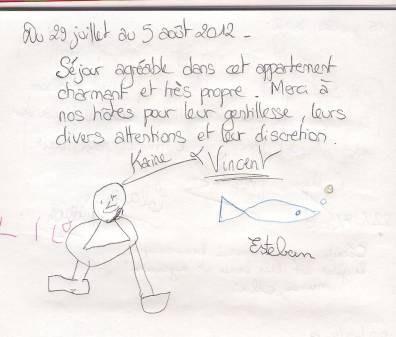 Du 29 juillet au 5 août 2012 -
Séjour agréable dans cet appartement
charmant et très propre. Merci à
nos hôtes pour leur gentillesse, leurs
divers attentions et leur discretion.
Karine & Vincent
Esteban